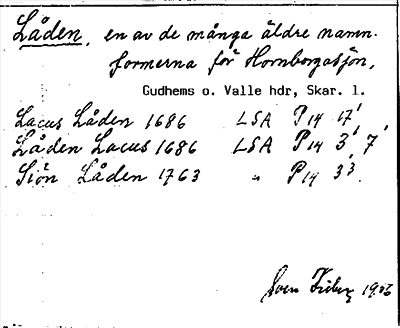 Låden, en av de många äldre namn-
formerna för Hornborgasjön,
Gudhems o. Valle hdr, Skar. l.
Lacus Låden 1686 LSA P14 17'
Låden Lacus 1686 LSA P14 3' 7'
Siön Låden 1763 " P14 3³
Sven